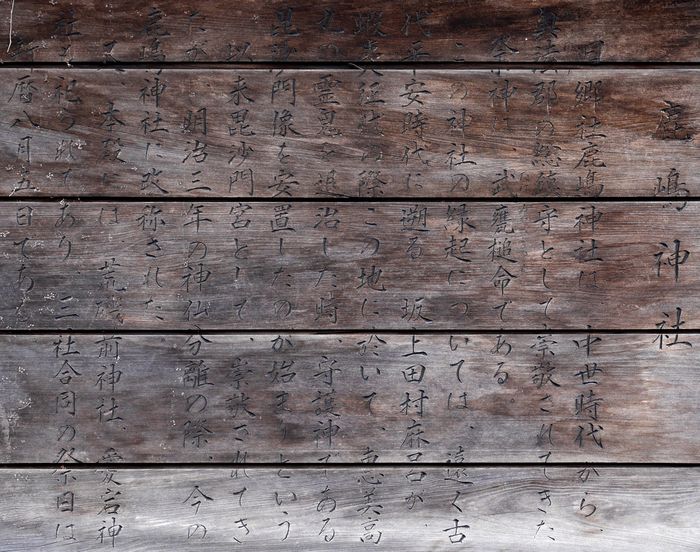 鹿嶋神社
旧郷社鹿嶋神社は、中世時代から、
郡の総鎮守として崇敬されてきた
祭神は、武甕槌命である。
この神社の縁起については、遠く古
代平安時代に遡る。坂上田村麻呂が、
蝦夷征伐の際、この地に於いて、恵美高
丸の霊鬼を退治した時、守護神である
毘沙門像を安置したのが始まりという
以来毘沙門宮として、崇敬されてき
たが、明治三年の神仏分離の際、今の
鹿嶋神社に改称された
又、本殿には、荒磯前神社、愛宕神
社も祀られてあり、三社合同の祭日は
旧暦八月五日である